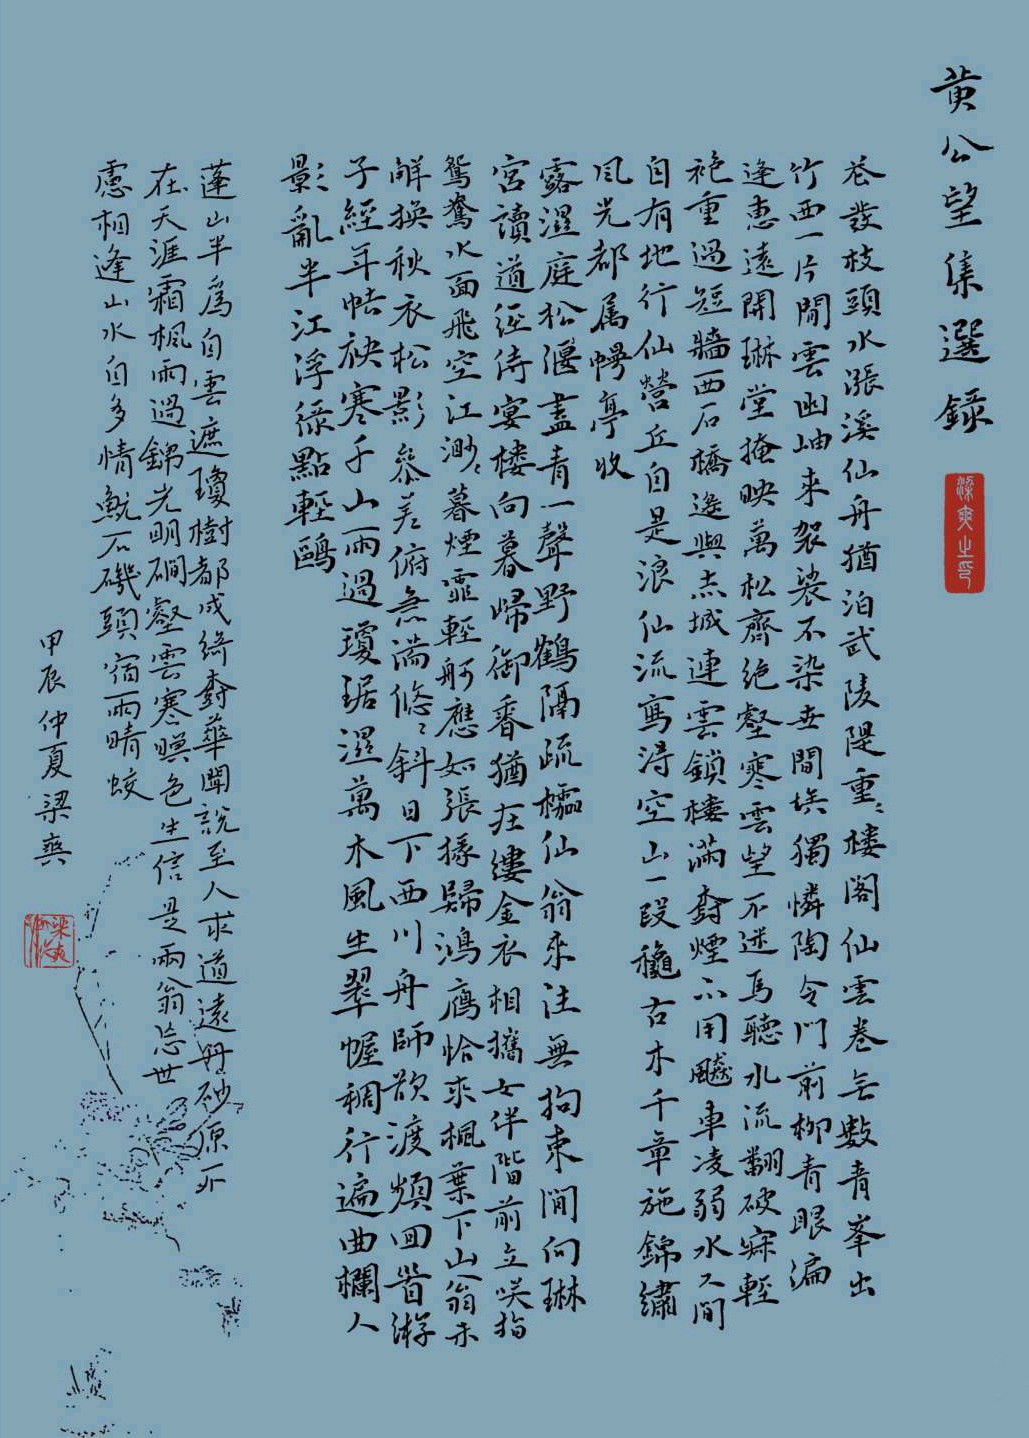 黄公望集選録
梁爽之印
花發枝頭水漲溪仙舟猶泊武陵隄重重樓閣仙雲卷無數青峯出
竹西一片閒雲出岫来袈裟不染世間埃獨憐陶令門前柳青眼偏
逢惠遠開琳堂掩映萬松齊絶壑寒雲望不迷馬聽水流翻破寐輕
袍重過短牆西石橋遥與赤城連雲鎖樓滿樹煙不用飈車凌弱水人間
自有地行仙營丘自是浪仙流寫得空山一段龝古木千章施錦繡
风光都属幔亭收
露濕庭松偃盖青一聲野鶴隔疏櫺仙翁来往無拘束閒向琳
宫讀道經侍宴樓向暮歸御香猶在縷金衣相攜女伴階前立笑指
鴛鴦水面飛空江渺渺暮煙霏輕舸應如張掾歸鴻鴈恰来楓葉下山翁未
解換秋衣松影叅差俯急湍悠悠斜日下西川舟師欲渡頻回首游
子經年怯袂寒千山雨過瓊琚濕萬木風生翠幄稠行遍曲欄人
影亂半江浮緑點輕鷗
蓬山半爲白雲遮瓊樹都成綺樹華聞説至人求道遠丹砂原不
在天涯霜楓雨過錦光明磵壑雲寒暝色生信是兩翁忘世
慮相逢山水自多情魷石磯頭宿雨晴蛟
甲辰仲夏梁爽